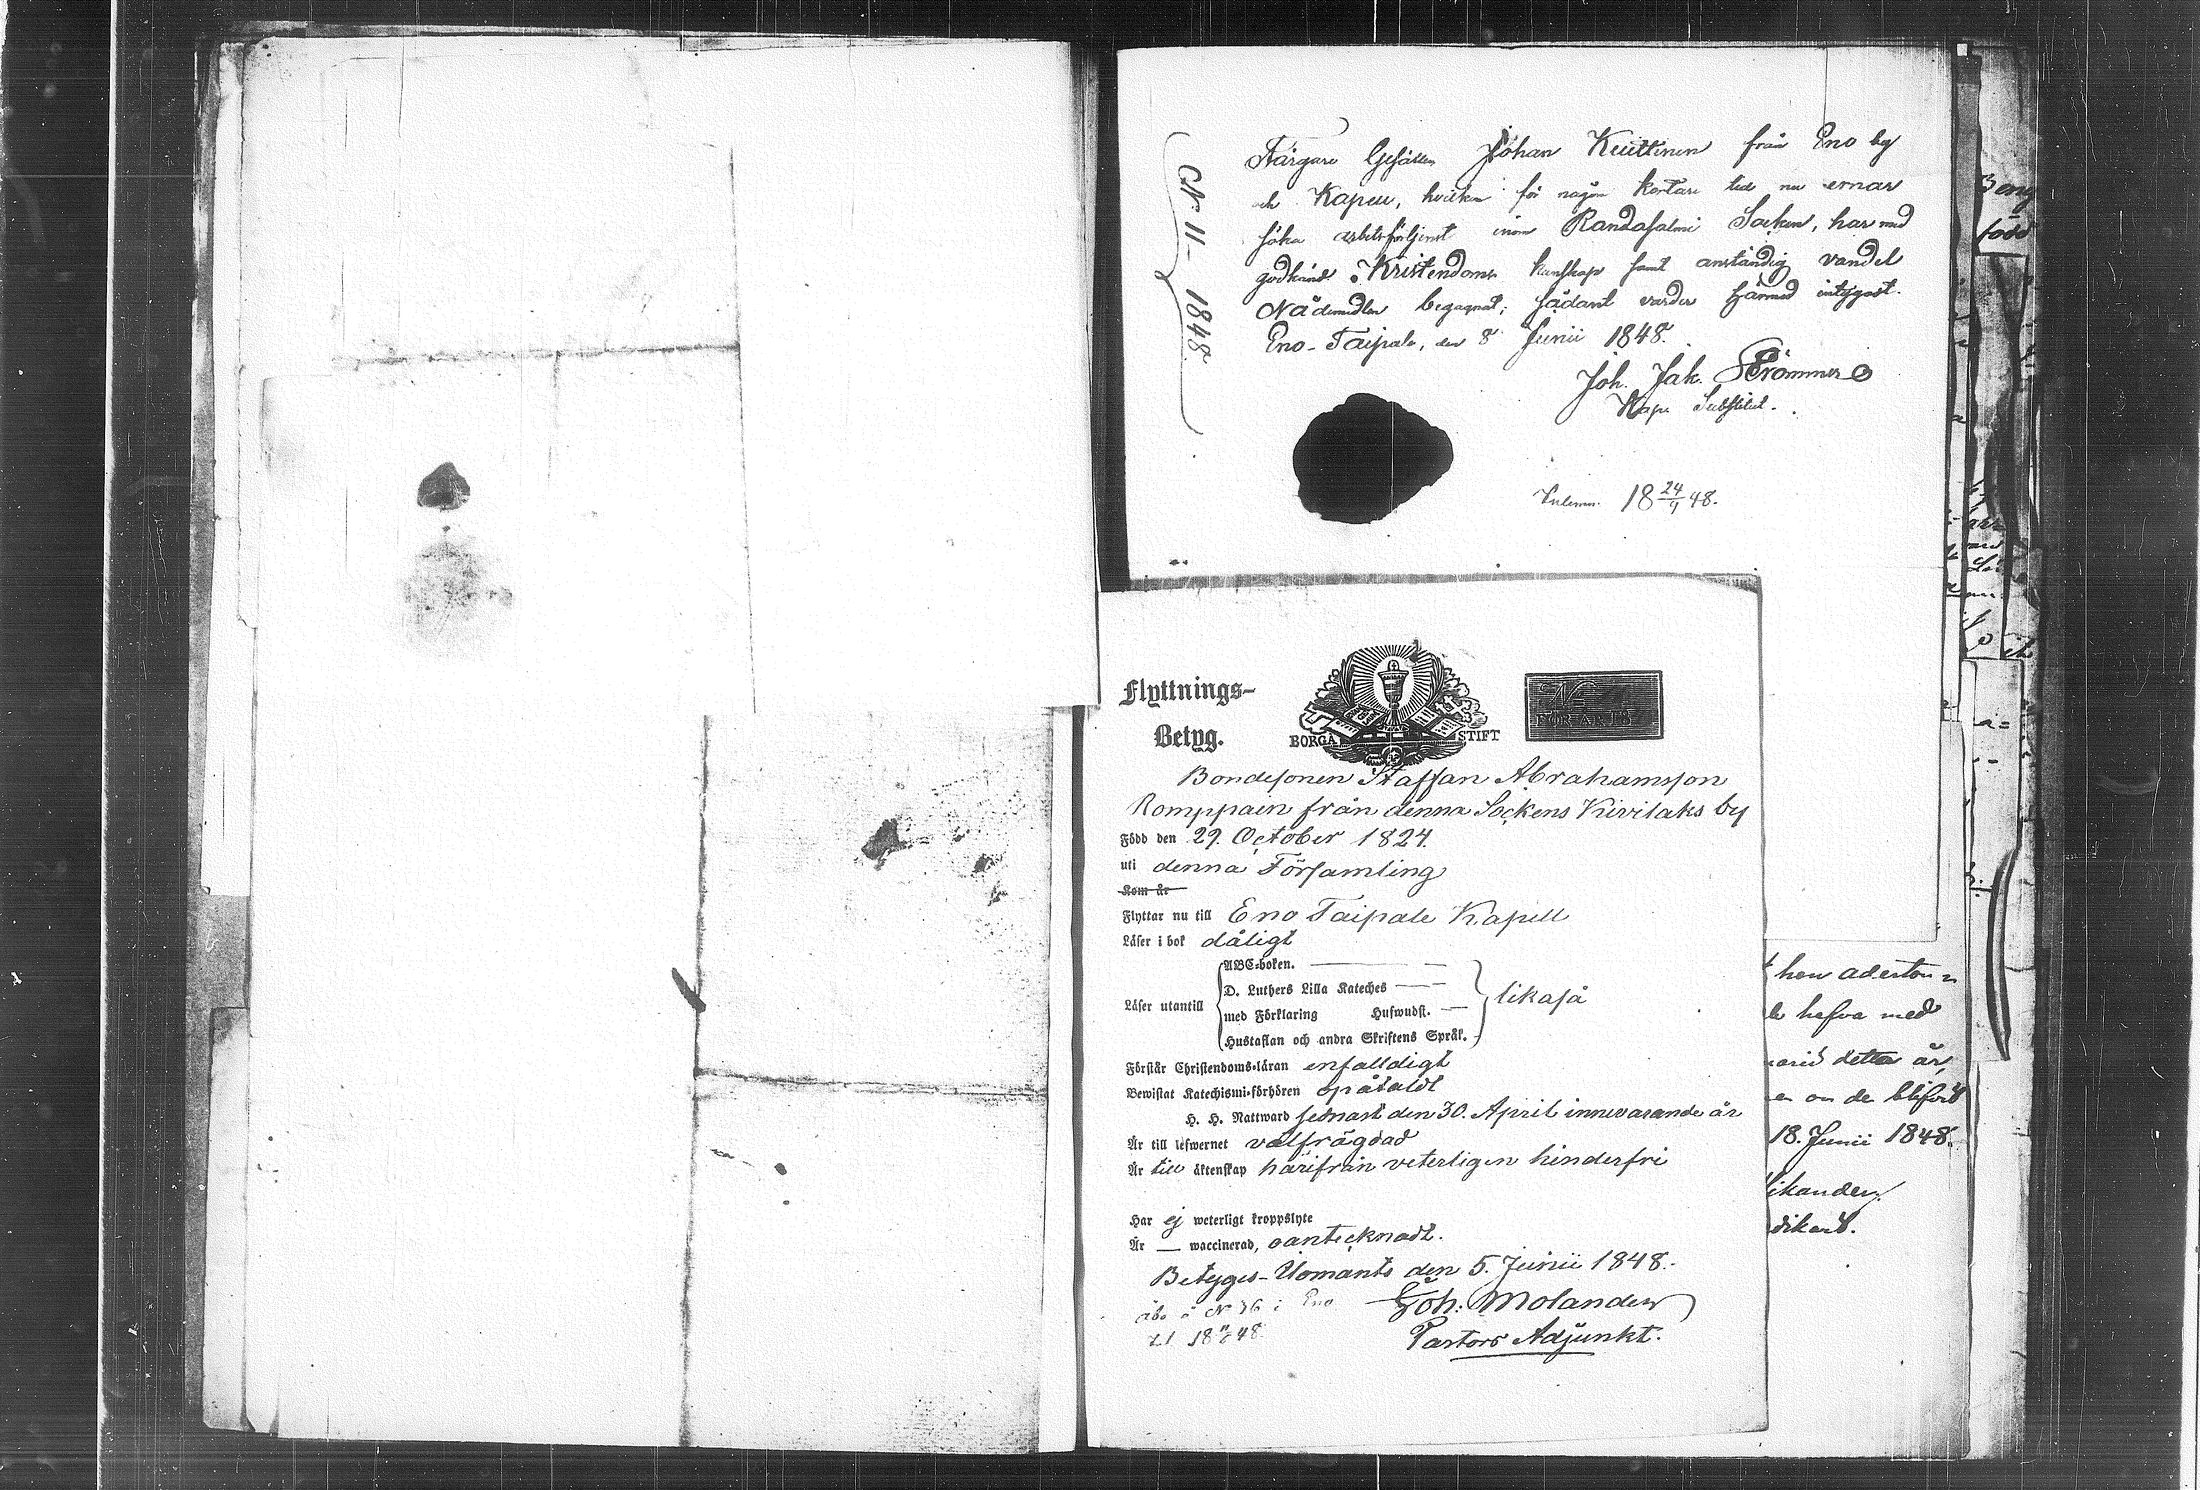 N 11 - 1848.
Färgare Gesällen Johan Kiuttinen från Eno by
och Kapell, hvilken för någon kortare tid nu ernar
söka arbetsförtjenst inom Randasalmi Socken, har med
godkänd Kristendoms kunskap samt anständig vandel
Nådemedlen begagnat; sådant varder härmed intygadt.
Eno-Taipale, den 8 Junii 1848.
Joh. Jak. Strömmer
Kap. Substitut.
Inlemn. 18 24/9 48.
Flyttnings-
Betyg.
BORGÅ STIFT
N
FÖR ÅR 18
Bondesonen Staffan Abrahamsson
Romppain från denna Sockens Kivilaks by
Född den 29. October 1824.
uti denna Församling
Kom år
Flyttar nu till Eno Taipale Kapell
Läser i bok dåligt
Läser utantill
ABC-boken.
D. Luthers Lilla Kateches
med Förklaring Hufwudst.
Hustaflan och andra Skriftens Språk.
likaså
Förstår Christendoms-läran enfalldigt
Bewistat Katechismi-förhören opåtaldt
H. H. Nattward sednast den 30. April innevarande år
Är till lefwernet välfrägdad
Är till äktenskap härifrån veterligen hinderfri
Har ej weterligt kroppslyte
Är — waccinerad, oantecknadt.
Betyges-Ilomants den 5. Junii 1848.
Joh: Molander
Pastors Adjunkt.
åbo å N 36 i Eno
48.
hon aderton
hafva med
detta år,
om de blifvit
18. Junii 1848.